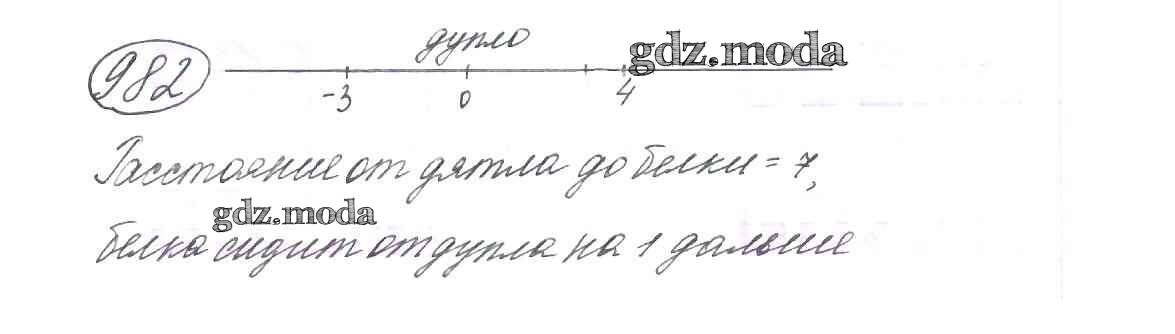 982
дупло
gdz.moda
-3 0 4
Расстояние от дятла до белки = 7,
gdz.moda
белка сидит от дупла на 1 дальше